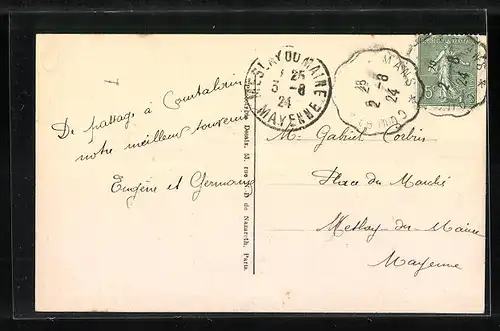 De passage à Courtalain
notre meilleur souvenir
Eugène et Germaine
MESLAY DU MAINE
1 25
3 - 8
24
MAYENNE
MANS *
28
2 - 8
24
28
2 - 8
24
15
M. Gabriel Corbin
Place du Marché
Meslay-du-Maine
Mayenne
de Nazareth, Paris.